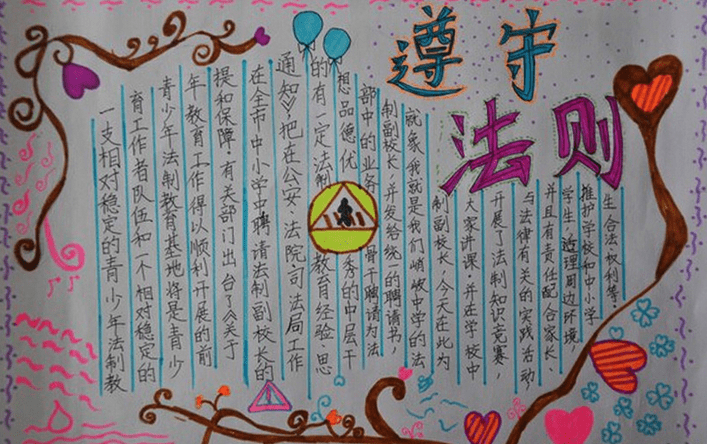 遵守
法则
一支相对稳定的青少年法制教
育工作者队伍和一个相对稳定的
青少年法制教育基地将是青少
年教育工作得以顺利开展的前
提和保障,有关部门出台了《关于
在全市中小学中聘请法制副校长的
通知》,把在公安、法院司法局工作
的有一定法制教育经验,思
想品德优秀的中层干
部中的业务骨干聘请为法
制副校长,并发给统一的聘请书,
就象我就是我们峭岐中学的法
制副校长,今天在此为
大家讲课,并在学校中
开展了法制知识竞赛,
与法律有关的实践活动
并且有责任配合家长、
学生,治理周边环境,
推护学校和中小学
生合法权利等。